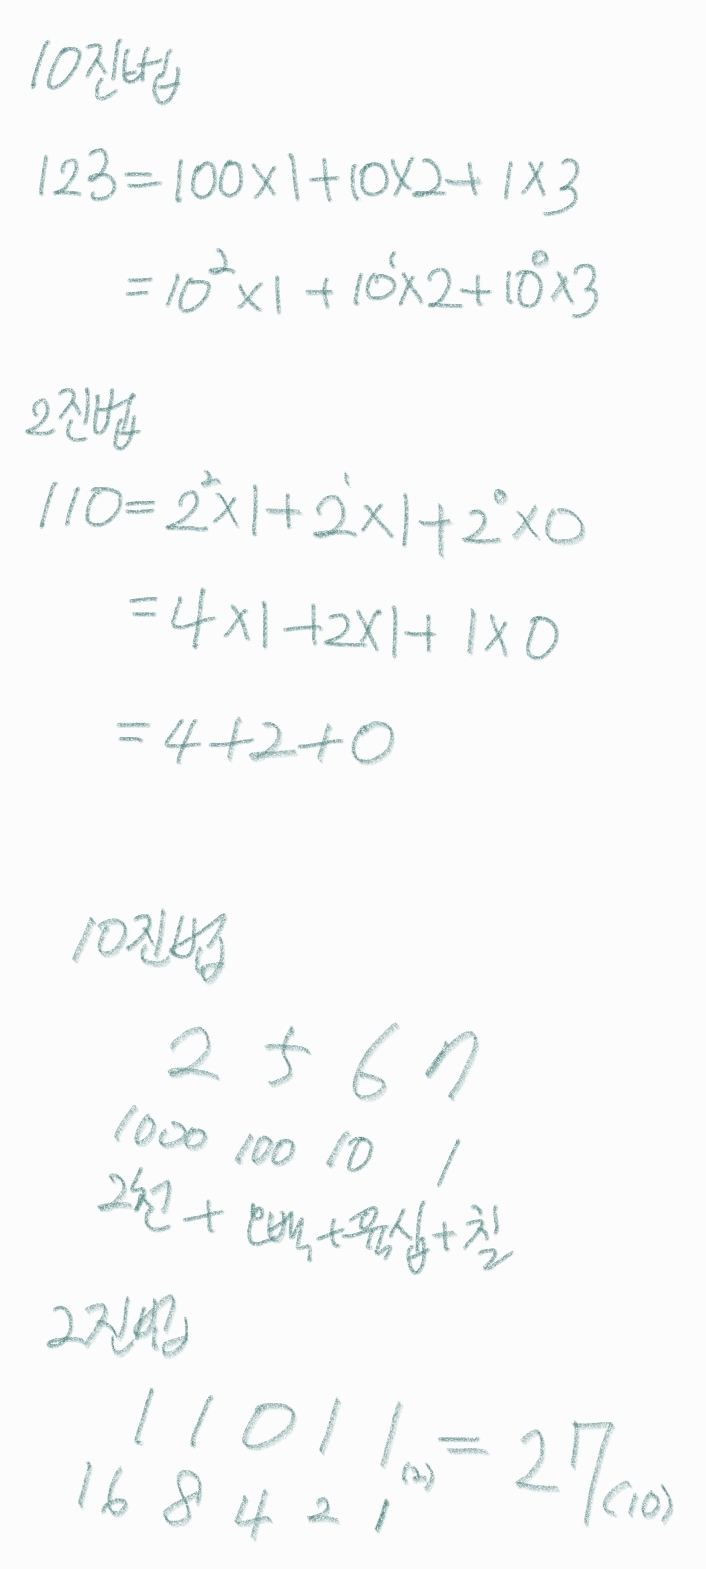 10진법
123=100×1+10×2+1×3
=10²×1+10¹×2+10⁰×3
2진법
110=2²×1+2¹×1+2⁰×0
=4×1+2×1+1×0
=4+2+0
10진법
2 5 6 7
1000 100 10 1
2천+오백+육십+칠
2진법
1 1 0 1 1₍₂₎=27₍₁₀₎
16 8 4 2 1